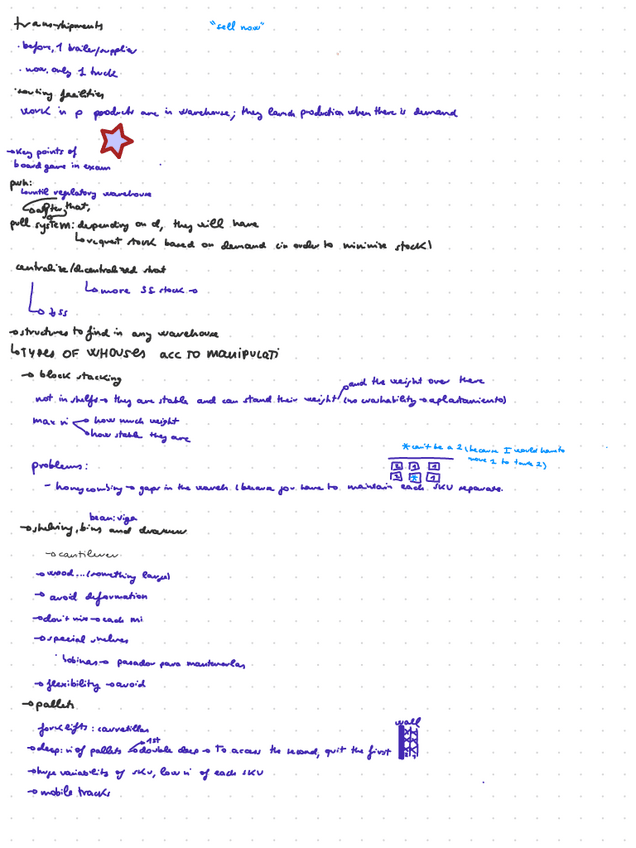 transshipments
"sell now"
· before, 1 trailer/supplier
· now, only 1 truck
· routing facilities
work in p products are in warehouse; they launch production when there is demand
→ key points of
board game in exam
push:
↳ until regulatory warehouse
after that,
pull system: depending on d, they will have
↳ request stock based on demand (in order to minimize stock)
centralize/decentralized strat
↳ more SS stock →
↳ ↓ SS
→ structures to find in any warehouse
↳ TYPES OF WHOUSES ACC TO MANIPULATI
→ block stacking
and the weight over there
not in shelfs → they are stable and can stand their weight (no crushability → aplastamiento)
max nº how much weight
how stable they are
* can't be a 2 (because I would have to
move 1 to take 2)
problems:
- honeycombing → gaps in the wareh. (because you have to maintain each SKU separate.
beam: viga
→ shelving, bins and drawers
→ cantilever
→ wood... (something large)
→ avoid deformation
→ don't mix → each
→ special shelves
· bobinas → pasador para mantenerlas
→ flexibility → avoid
→ pallets
wall
forklifts: carretillas
1st
→ deep: nº of pallets → double deep → To access the second, quit the first
→ huge variability of SKU, low nº of each SKU
→ mobile tracks